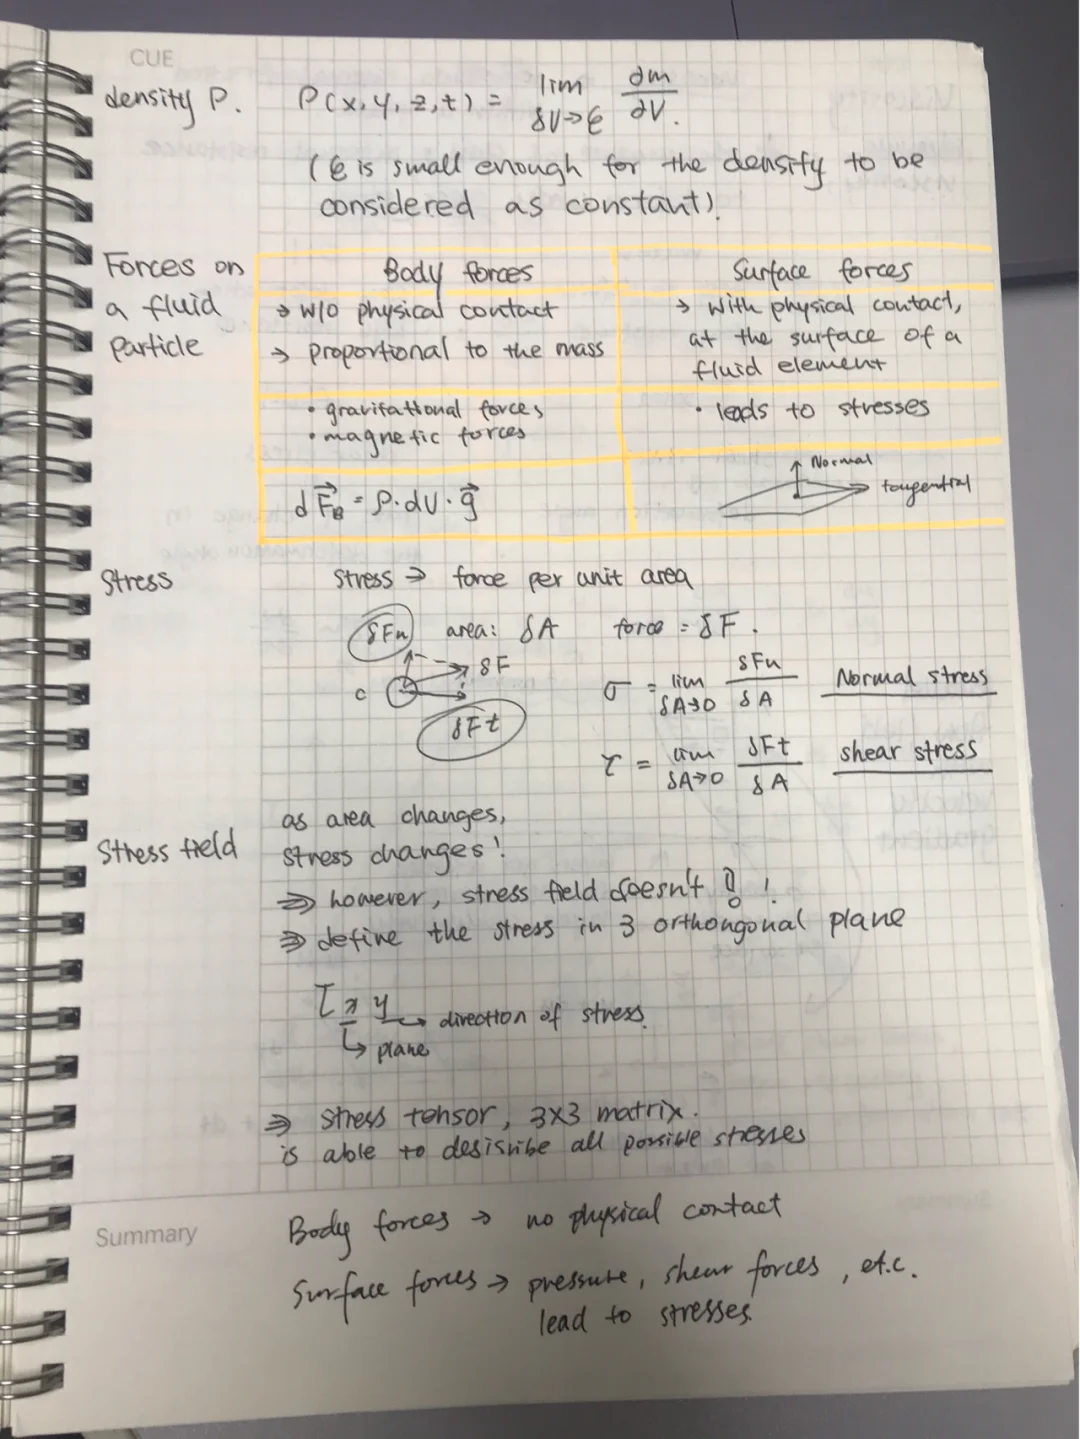 CUE
density ρ.
ρ(x, y, z, t) = lim δV→ε ∂m/∂V.
(ε is small enough for the density to be
considered as constant).
Forces on
a fluid
particle
Body forces
→ w/o physical contact
→ proportional to the mass
• gravitational forces
• magnetic forces
dF⃗B = ρ·dV·g⃗
Surface forces
→ With physical contact,
at the surface of a
fluid element
• leads to stresses
Normal
tangential
Stress
Stress → force per unit area
δFn area: δA force = δF.
δF
C
δFt
σ = lim δA→0 δFn/δA Normal stress
τ = lim δA→0 δFt/δA shear stress
Stress field
as area changes,
stress changes!
⇒ however, stress field doesn't !
⇒ define the stress in 3 orthongonal plane
τxy → direction of stress.
↳ plane
⇒ stress tensor, 3×3 matrix.
is able to desisribe all possible stresses
Summary
Body forces → no physical contact
Surface forces → pressure, shear forces, etc.
lead to stresses.